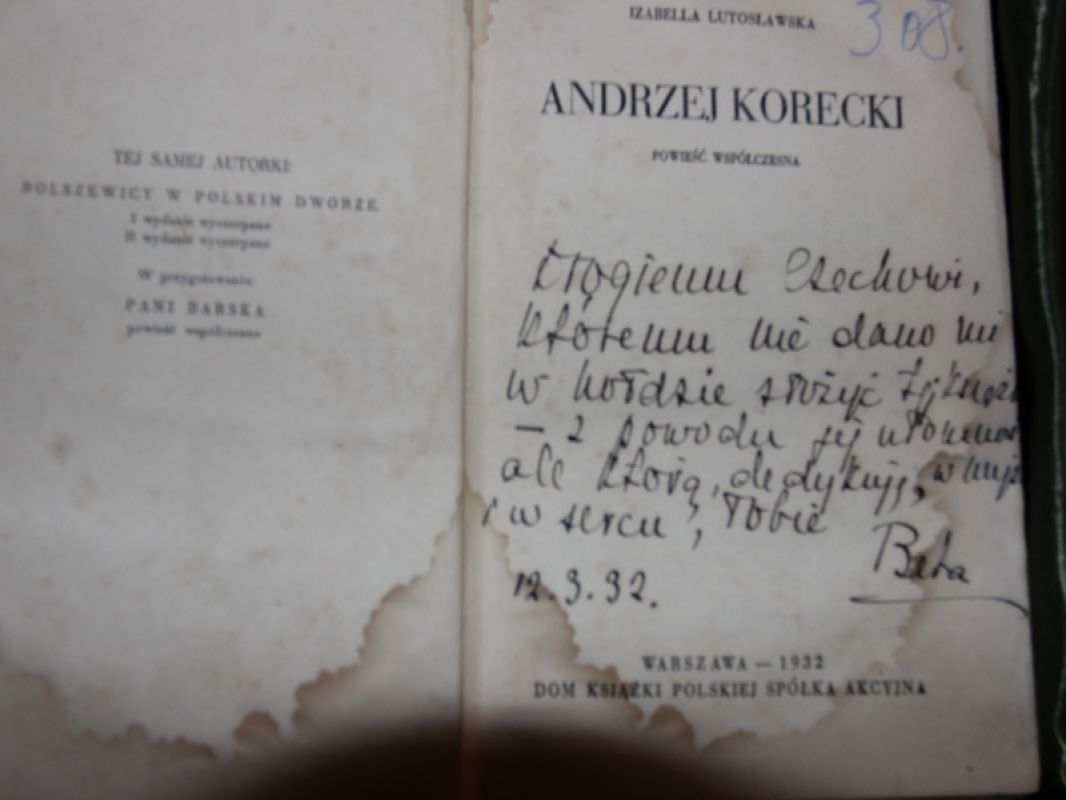 TEJ SAMEJ AUTORKI:
BOLSZEWICY W POLSKIM DWORZE.
I wydanie wyczerpane
II wydanie wyczerpane
W przygotowaniu:
PANI BARSKA
powieść współczesna
IZABELLA LUTOSŁAWSKA
ANDRZEJ KORECKI
POWIEŚĆ WSPÓŁCZESNA
Czechowi,
któremu nie dano mi
w hołdzie złożyć tej
— z powodu jej
ale którą, dedykuję,
i w sercu, Tobie
Beta
12.3.32.
WARSZAWA — 1932
DOM KSIĄŻKI POLSKIEJ SPÓŁKA AKCYJNA